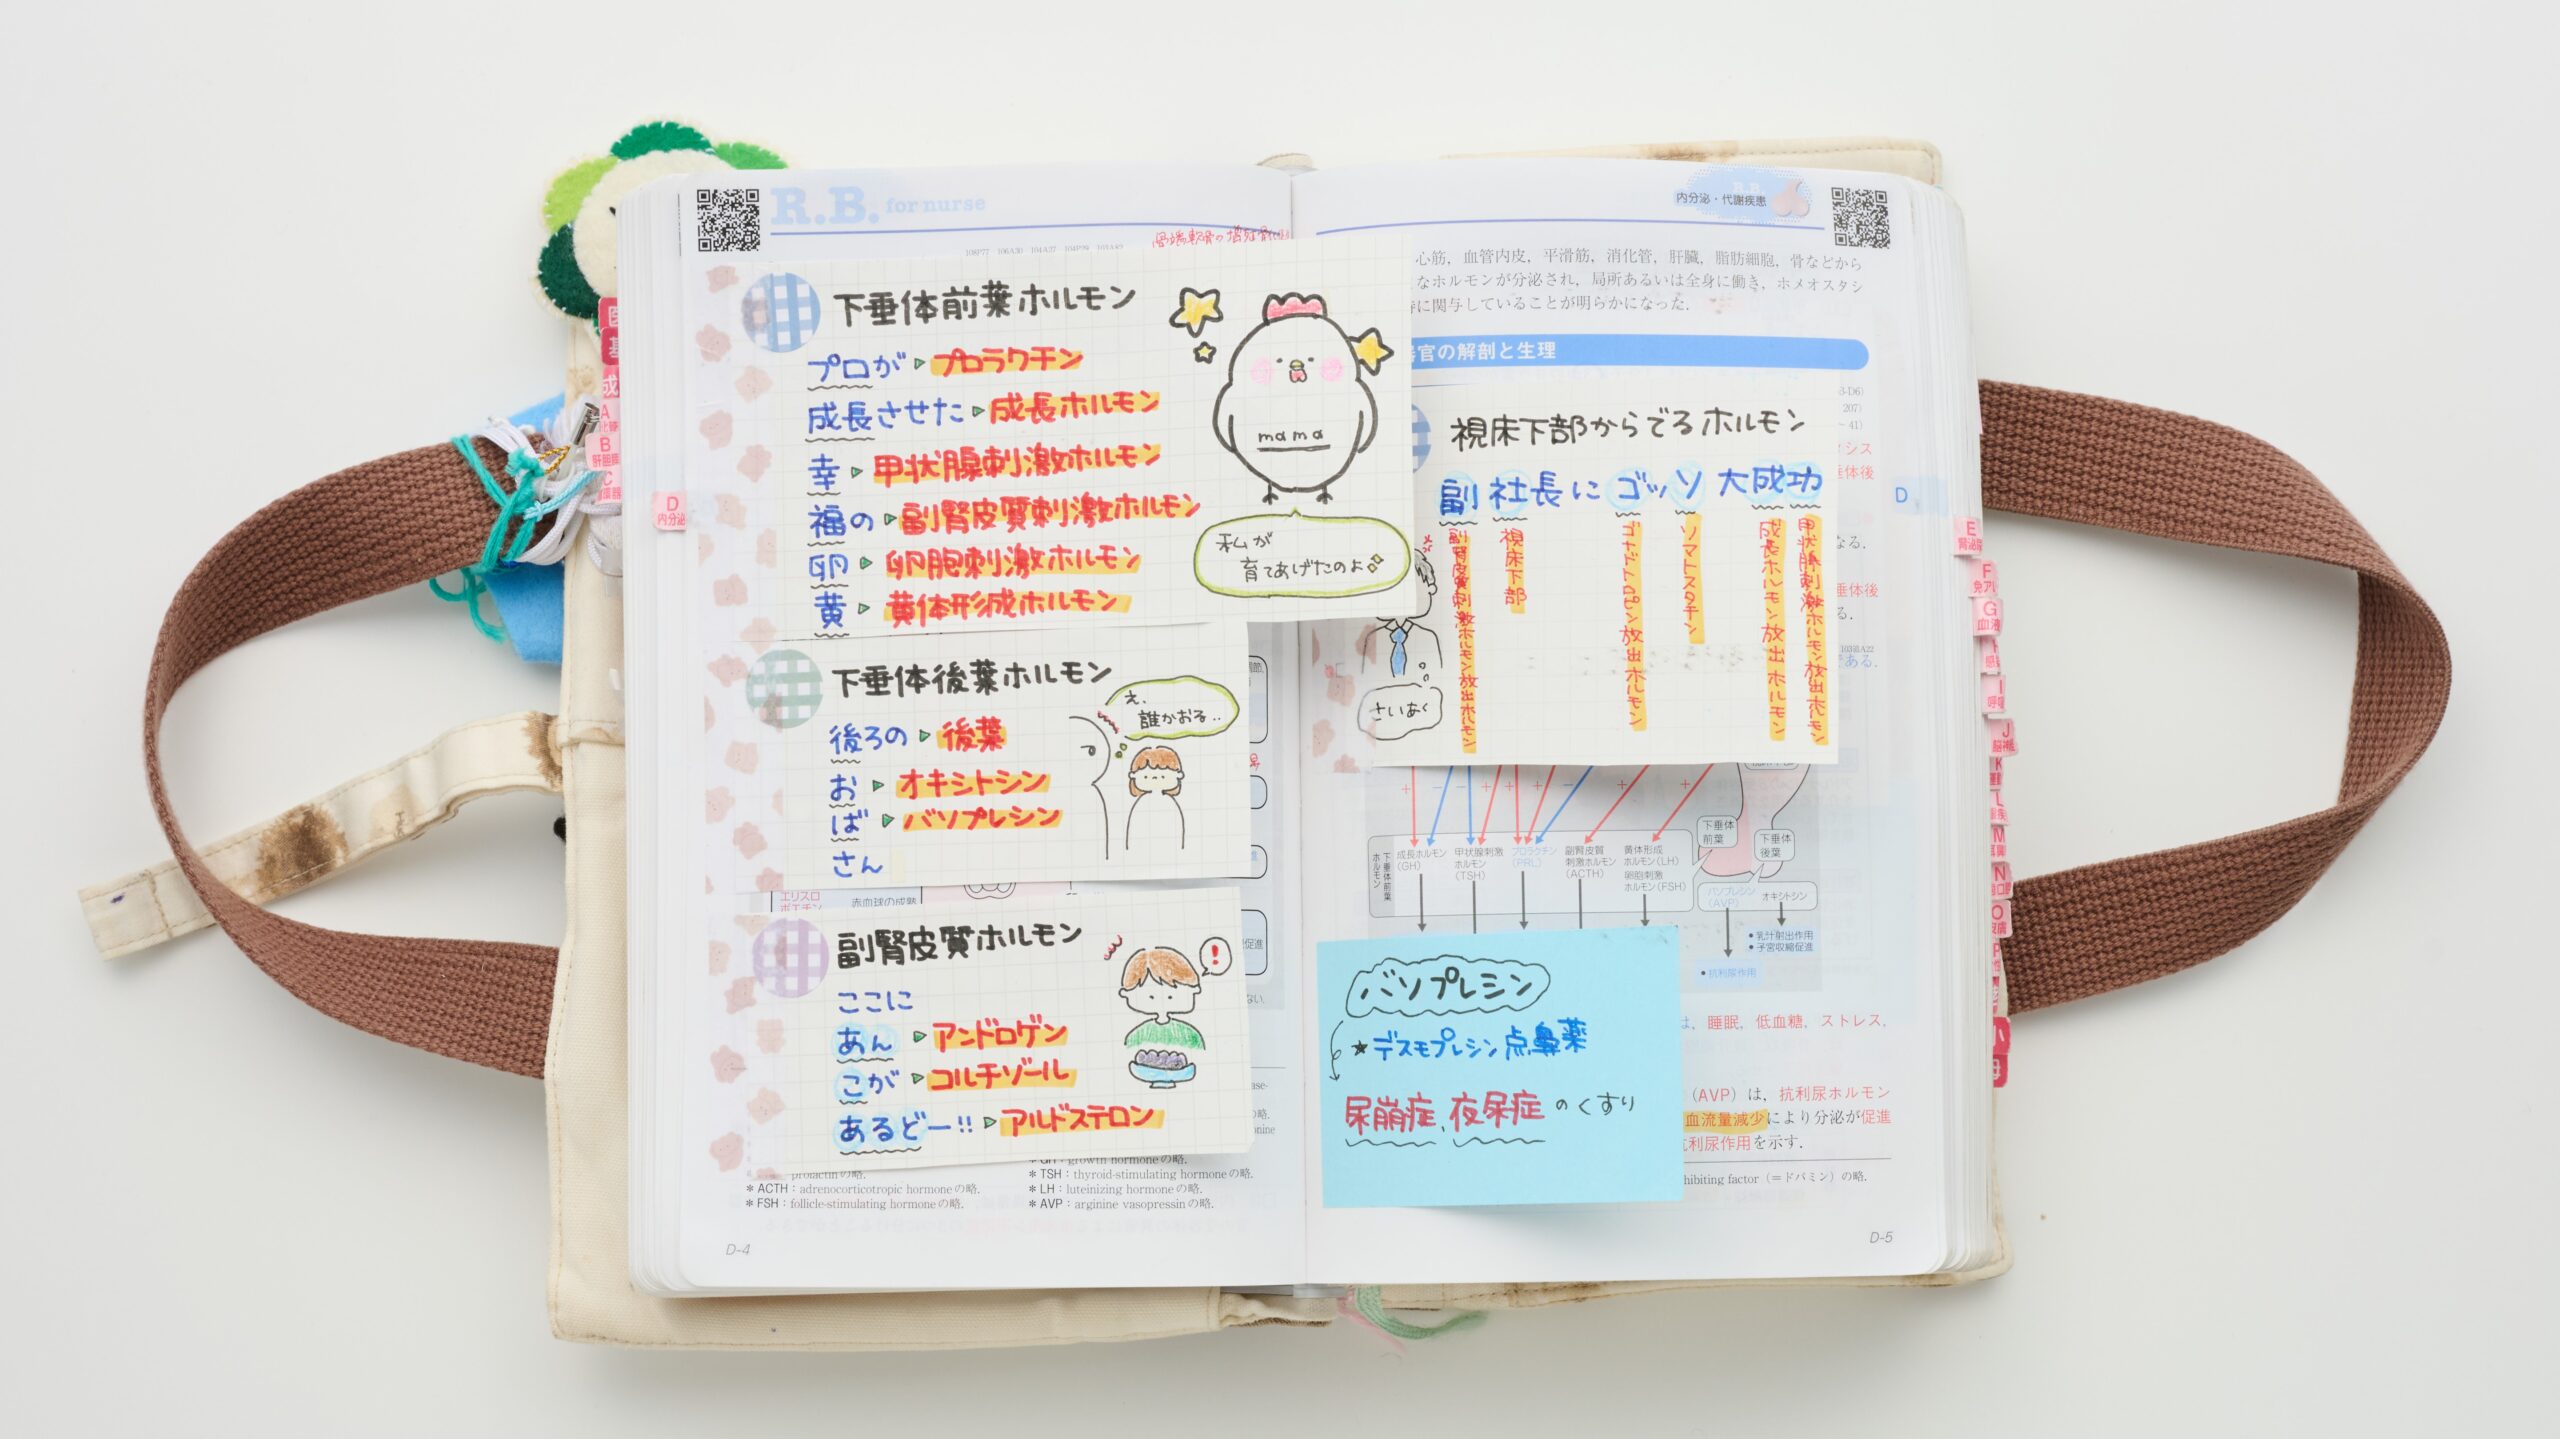 R.B. for nurse
108P77 106A30 104A27 104P29 103A82
下垂体前葉ホルモン
プロが ▷ プロラクチン
成長させた ▷ 成長ホルモン
幸 ▷ 甲状腺刺激ホルモン
福の ▷ 副腎皮質刺激ホルモン
卵 ▷ 卵胞刺激ホルモン
黄 ▷ 黄体形成ホルモン
mama
私が
育てあげたのよ
下垂体後葉ホルモン
後ろの ▷ 後葉
お ▷ オキシトシン
ば ▷ バソプレシン
さん
え、
誰かおる..
エリスロ
ポエチン
赤血球の成熟
副腎皮質ホルモン
ここに
あん ▷ アンドロゲン
こが ▷ コルチゾール
あるどー!! ▷ アルドステロン
!
prolactinの略.
＊ACTH：adrenocorticotropic hormoneの略.
＊FSH：follicle-stimulating hormoneの略.
＊GH：growth hormoneの略.
＊TSH：thyroid-stimulating hormoneの略.
＊LH：luteinizing hormoneの略.
＊AVP：arginine vasopressinの略.
D-4
D
内分泌
内分泌・代謝疾患
心筋，血管内皮，平滑筋，消化管，肝臓，脂肪細胞，骨などから
なホルモンが分泌され，局所あるいは全身に働き，ホメオスタシ
に関与していることが明らかになった．
器官の解剖と生理
視床下部からでるホルモン
副社長にゴッソ大成功
副腎皮質刺激ホルモン放出ホルモン
視床下部
ゴナドトロピン放出ホルモン
ソマトスタチン
成長ホルモン放出ホルモン
甲状腺刺激ホルモン放出ホルモン
さいあく
垂体後
垂体後
103追A22
である．
D
下垂体前葉
ホルモン
成長ホルモン
(GH)
甲状腺刺激
ホルモン
(TSH)
プロラクチン
(PRL)
副腎皮質
刺激ホルモン
(ACTH)
黄体形成
ホルモン(LH)
卵胞刺激
ホルモン(FSH)
下垂体
前葉
下垂体
後葉
バソプレシン
(AVP)
オキシトシン
●乳汁射出作用
●子宮収縮促進
●抗利尿作用
バソプレシン
★デスモプレシン点鼻薬
尿崩症、夜尿症のくすり
は，睡眠，低血糖，ストレス，
(AVP) は，抗利尿ホルモン
血流量減少により分泌が促進
抗利尿作用を示す．
hibiting factor（＝ドパミン）の略.
D-5
E
F
G
血液
I
J
K
L
M
N
O
皮膚